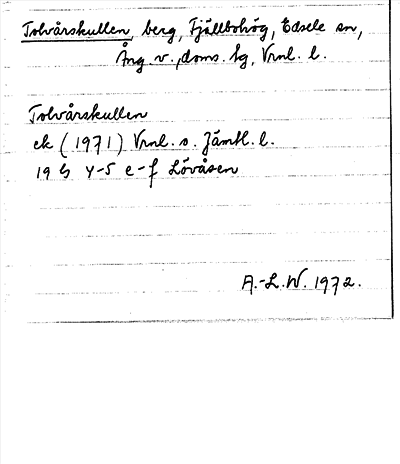 Tolvårskullen, berg, Fjällbohög, Edsele sn,
Ång. v., doms. tg, Vrnl. l.
Tolvårskullen
ek (1971) Vrnl. o. Jämtl. l.
19 G 4-5 e-f Lövåsen
A.-L.W. 1972.